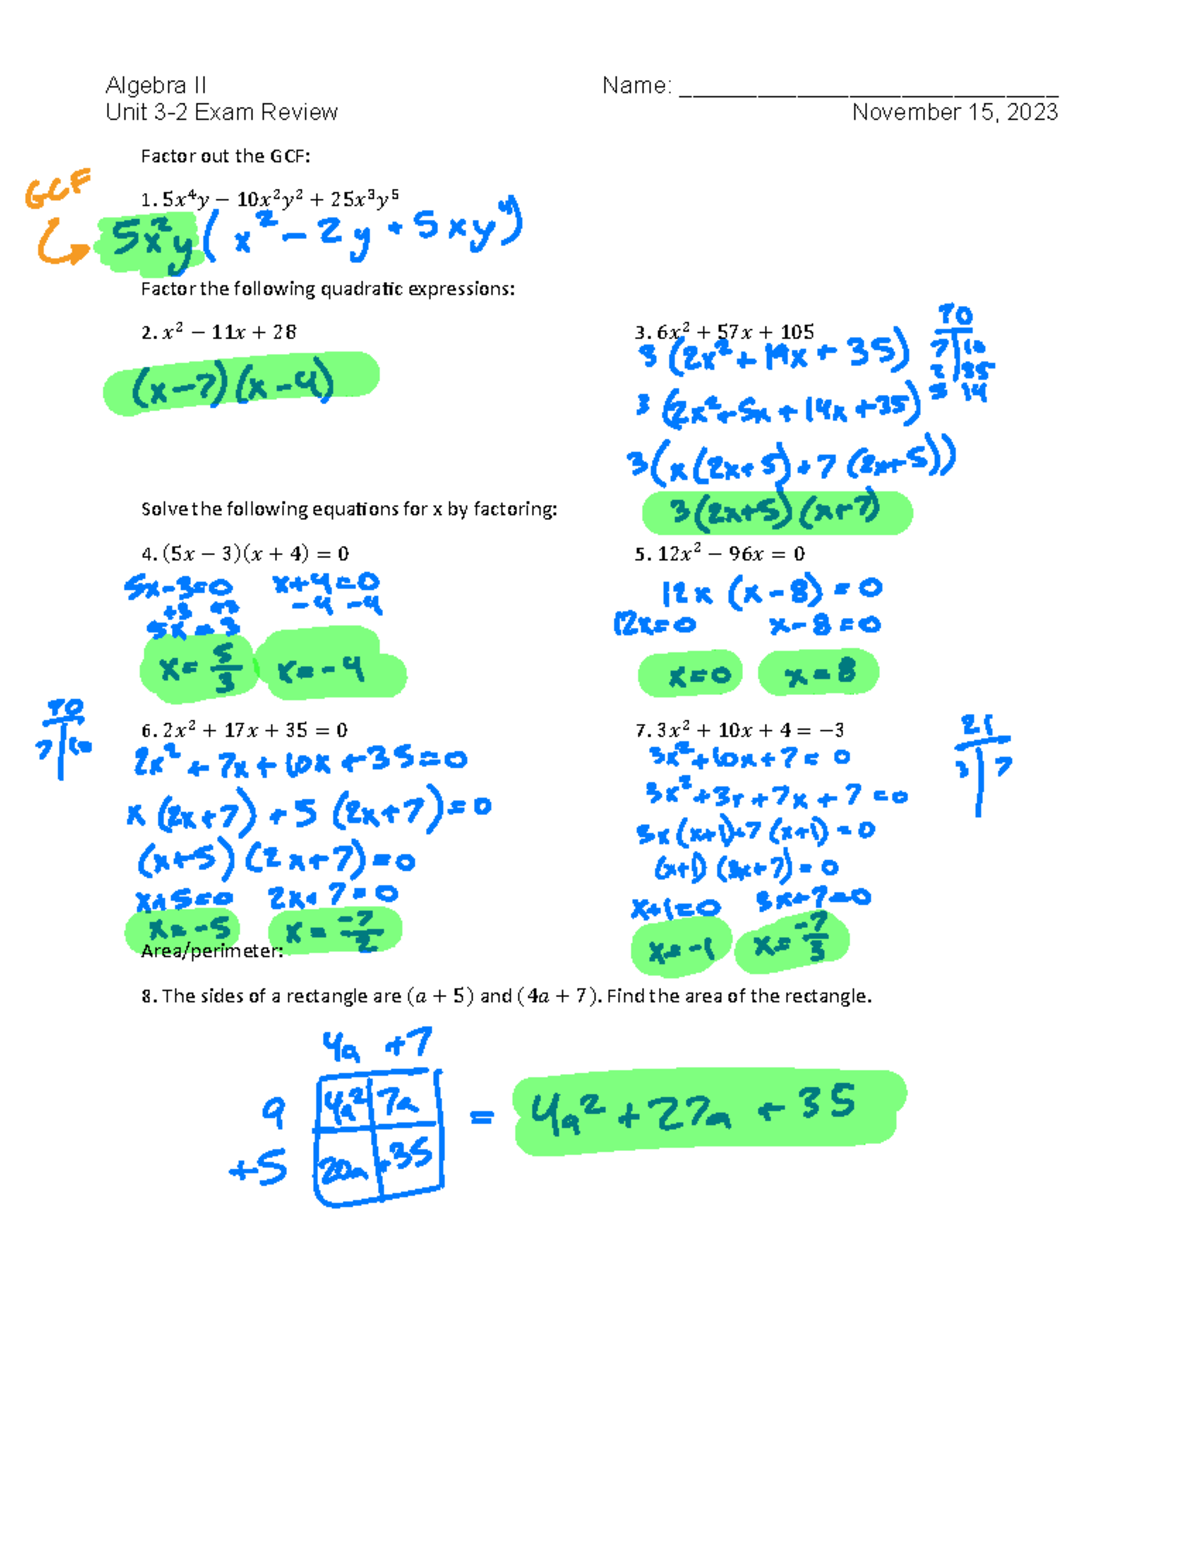 Algebra II Name: ____________________________
Unit 3-2 Exam Review November 15, 2023
Factor out the GCF:
GCF
1. 5x⁴y − 10x²y² + 25x³y⁵
5x²y(x² − 2y + 5xy⁴)
Factor the following quadratic expressions:
2. x² − 11x + 28
(x−7)(x−4)
3. 6x² + 57x + 105
3(2x² + 19x + 35)
3(2x²+5x+14x+35)
3(x(2x+5)+7(2x+5))
3(2x+5)(x+7)
70
7 10
2 35
5 14
Solve the following equations for x by factoring:
4. (5x − 3)(x + 4) = 0
5x−3=0 x+4=0
+3 +3 −4 −4
5x = 3
x= 5/3 x=−4
5. 12x² − 96x = 0
12x (x−8) = 0
12x=0 x−8=0
x=0 x=8
70
7 10
6. 2x² + 17x + 35 = 0
2x² + 7x + 10x + 35=0
x(2x+7) + 5(2x+7)=0
(x+5)(2x+7)=0
x+5=0 2x+7=0
x=−5 x= −7/2
7. 3x² + 10x + 4 = −3
3x²+10x+7= 0
3x²+3x+7x+7=0
3x(x+1)+7(x+1)=0
(x+1)(3x+7)=0
x+1=0 3x+7=0
x=−1 x= −7/3
21
3 7
Area/perimeter:
8. The sides of a rectangle are (a + 5) and (4a + 7). Find the area of the rectangle.
4a +7
a 4a² 7a
+5 20a +35
= 4a² + 27a + 35